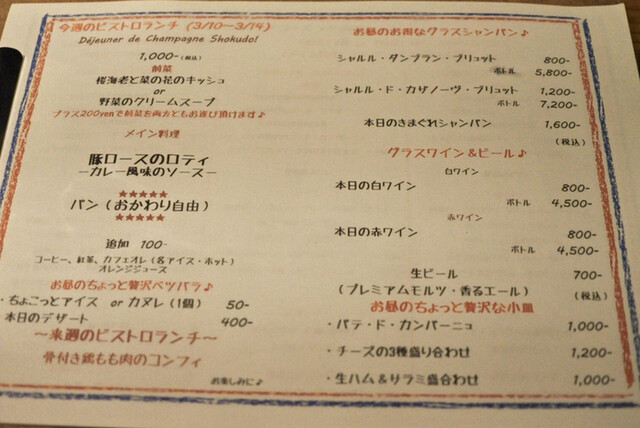 今週のビストロランチ (3/10〜3/14)
Déjeuner de Champagne Shokudo!
1,000-(税込)
前菜
桜海老と菜の花のキッシュ
or
野菜のクリームスープ
プラス200yenで前菜を両方ともお選び頂けます♪
メイン料理
豚ロースのロティ
ーカレー風味のソースー
★★★★★
パン (おかわり自由)
★★★★★
追加 100-
コーヒー、紅茶、カフェオレ (各アイス・ホット)
オレンジジュース
お昼のちょっと贅沢ベツバラ♪
・ちょこっとアイス or カヌレ (1個) 50-
本日のデザート 400-
〜来週のビストロランチ〜
骨付き鶏もも肉のコンフィ
お楽しみに♪
お昼のお得なグラスシャンパン♪
シャルル・ダンブラン・ブリュット 800-
ボトル 5,800-
シャルル・ド・カザノーヴ・ブリュット 1,200-
ボトル 7,200-
本日のきまぐれシャンパン 1,600-
(税込)
グラスワイン&ビール♪
白ワイン
本日の白ワイン 800-
ボトル 4,500-
赤ワイン
本日の赤ワイン 800-
ボトル 4,500-
生ビール 700-
(プレミアムモルツ・香るエール) (税込)
お昼のちょっと贅沢な小皿
・パテ・ド・カンパーニュ 1,000-
・チーズの3種盛り合わせ 1,200-
・生ハム&サラミ盛合わせ 1,000-